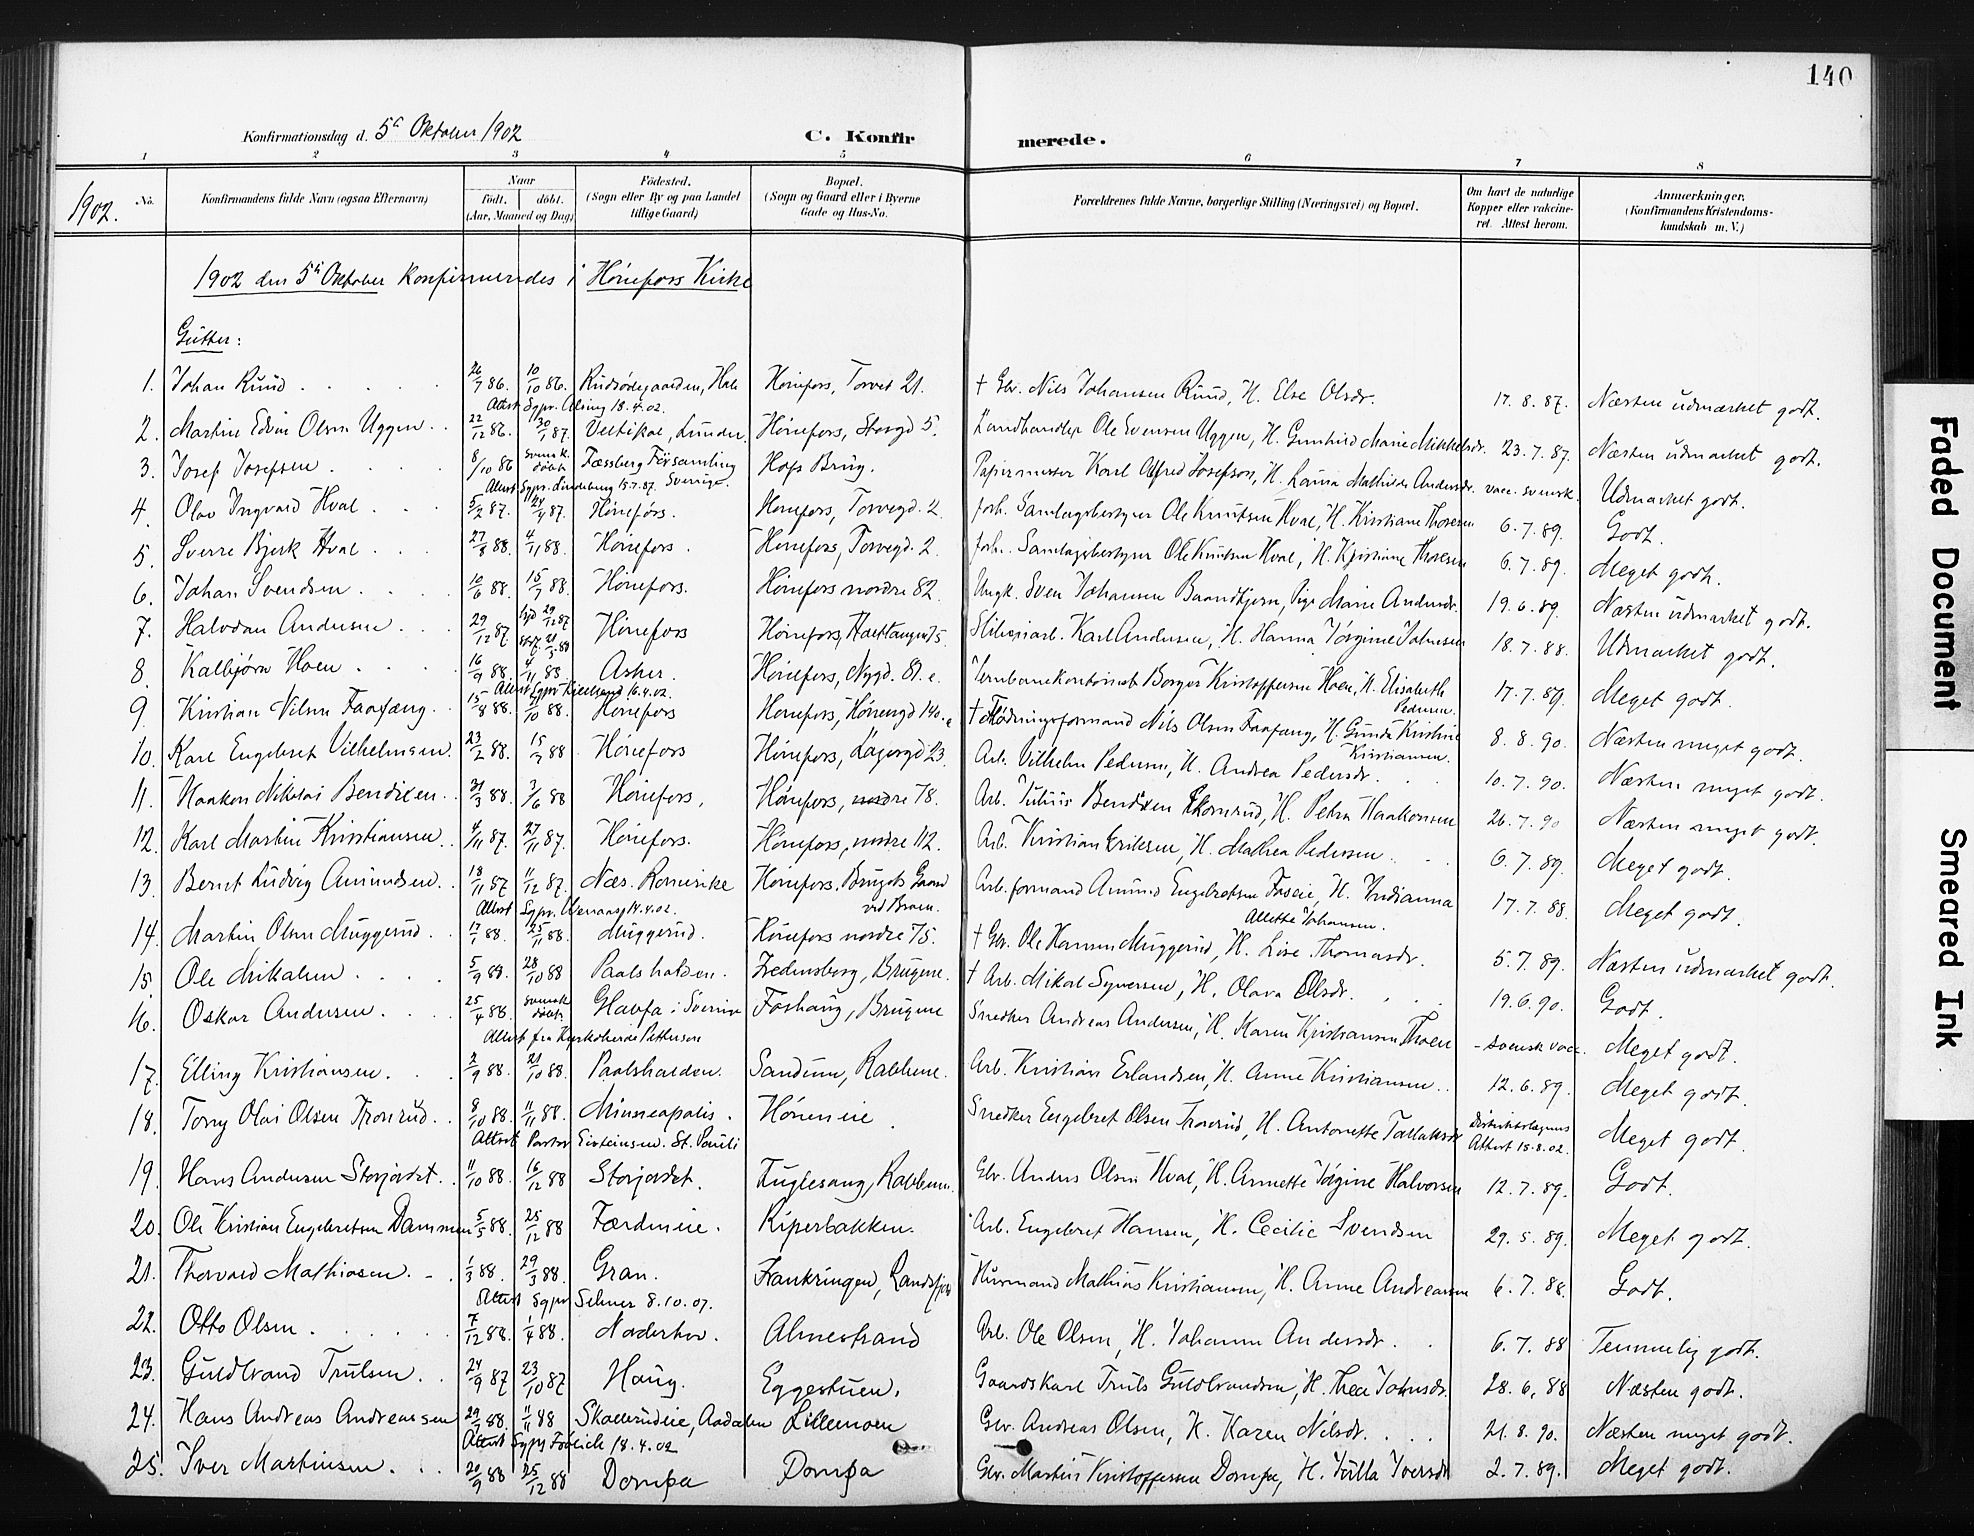 140
Konfirmationsdag d. 5te Oktober 1902
C. Konfirmerede.
1 2 3 4 5 6 7 8
1902. No. Konfirmandens fulde Navn (ogsaa Efternavn) Naar født. døbt. (Aar, Maaned og Dag) Fødested. (Sogn eller By og paa Landet tillige Gaard) Bopæl. (Sogn og Gaard eller i Byerne Gade og Hus-No. Forældrenes fulde Navne, borgerlige Stilling (Næringsvei) og Bopæl. Om havt de naturlige Kopper eller vakcineret. Attest herom. Anmerkninger. (Konfirmandens Kristendomskundskab m. V.)
1902 den 5te Oktober konfirmeredes i Hønefos Kirke
Gutter:
1. Johan Ruud 26/7 86. 10/10 86. Hønefos, Torvet 21. † Gbr. Nils Johansen Ruud, H. Else Olsdr. 17.8.87. Næsten udmærket godt.
Attest Sgpr. 18.4.02.
2. Martin Edvin Olsen Uggen 22/12 86. 30/1 87. Veltikal, Lunder Hønefos, Storgd 5. Landhandler Ole Svensen Uggen, H. Gunhild Marie Mikkelsdr. 23.7.87. Næsten udmærket godt.
3. Josef Josefsen 8/10 86 svensk døbt Fæssberg Församling Sverige. Hofs Brug. Papirmester Karl Alfred Josefson, H. Laura Mathilde Andersdr. vacc. svensk. Udmærket godt.
Attest Sgpr. Lindeburg 15.7.87.
4. Olav Ingvard Hval 5/2 87. 24/4 87. Hønefos. Hønefos, Torvegd. 2. forh. Samlagsbestyrer Ole Knutsen Hval, H. Kristiane Thoresen 6.7.89. Godt.
5. Sverre Bjerk Hval 27/8 88. 4/11 88. Hønefos. Hønefos, Torvegd. 2 forh. Samlagsbestyrer Ole Knutsen Hval, H. Kristiane Thoresen 6.7.89. Meget godt.
6. Johan Svendsen 10/6 88. 15/7 88. Hønefos. Hønefos nordre 82. Ungk. Sven Johansen Baandtjern, Pige Marie Andersdr. 19.6.89. Næsten udmærket godt.
7. Halvdan Andersen 29/12 87. 29/12 87 Hønefos Hønefos, 75. Sliberiarb. Karl Andersen, H. Hanna Jørgine Johnsen 18.7.88. Udmærket godt.
8. Kalbjørn Hoen 16/9 88. 4/11 88 Asker. Hønefos, Nygd. 81. c. Jernbanekontorist Borger Kristoffersen Hoen, H. Elisabeth Pedersen. 17.7.89. Meget godt.
Attest Sgpr. Kjelland 16.4.02.
9. Kristian Nilsen Faafæng 15/8 88. 21/10 88. Hønefos Hønefos, Hønengd 140. c † Flødningsformand Nils Olsen Faafæng, H. Gunda Kristine Kristiansen. 8.8.90. Næsten meget godt.
10. Karl Engebret Vilhelmsen 23/2 88. 15/7 88 Hønefos Hønefos, Løkkegd 23. Arb. Vilhelm Pedersen, H. Andrea Pedersdr. 10.7.90. Næsten meget godt.
11. Haakon Nikolai Bendixen 31/3 88. 3/6 88 Hønefos, Hønefos, nordre 78. Arb. Julius Bendixen Skornrud, H. Petra Haakonsen 26.7.90 Næsten meget godt.
12. Karl Martin Kristiansen 4/11 87. 27/11 87. Hønefos. Hønefos, nordre 112. Arb. Kristian Eriksen, H. Mathea Pedersen 6.7.89. Meget godt.
13. Bernt Ludvig Amundsen 18/11 87 11/12 87. Næs. Romerike Hønefos. Brugets Gaard ved Broen. Arb.formand Amund Engebretsen Fossie, H. Indianna Allette Johansen. 17.7.88. Meget godt.
Attest Sgpr. 14.4.02.
14. Martin Olsen Muggerud 17/1 88. 25/11 88. Muggerud. Hønefos nordre 75. † Gbr. Ole Hansen Muggerud, H. Lise Thomasdr. 5.7.89. Næsten udmærket godt.
15. Ole Mikalsen 5/9 88. 28/10 88 Paalshalden. Fredensborg, Brugene. † Arb. Mikal Syversen, H. Olava Olsdr. 19.6.90. Godt.
16. Oskar Andersen 25/4 88. svensk døbt. Glavfa i Sverige Foshaug, Brugene Snedker Andreas Andersen, H. Karen Kristiansen Thoen - svensk vacc. Meget godt.
Attest fra Kyrkoherde Petterson
17. Elling Kristiansen 2/9 88. 21/10 88. Paalshalden. Sandum, Rabbene. Arb. Kristian Erlandsen, H. Anne Kristiansen 12.6.89. Meget godt.
18. Tony Olai Olsen Tronrud 8/10 88. 11/11 88. Minneapolis. Høneneie Snedker Engebret Olsen Tronrud, H. Antonette Tollaksdr Distriktslægens Attest 15.8.02. Meget godt.
Attest Pastor Eisteinsen. St. Pauli
19. Hans Andersen Storjordet 11/10 88. 16/12 88 Storjordet. Fuglesang, Rabbene. Gbr. Anders Olsen Hval, H. Annette Jørgine Halvorsen 12.7.89. Godt.
20. Ole Kristian Engebretsen Dammen 5/5 88. 25/12 88 Færdeneie. Kiperbakken. Arb. Engebret Hansen, H. Cecilie Svendsen 29.5.89. Meget godt.
21. Thorvald Mathiasen 1/3 88. 29/3 88. Gran. Frankringen, Randsfjord Husmand Mathias Kristiansen, H. Anne Andreasen 6.7.88. Godt.
Attest Sgpr. Selmer 8.10.07.
22. Otto Olsen 7/12 88. 1/4 88. Norderhov. Almestrand Arb. Ole Olsen, H. Johanne Andersdr. 6.7.88 Temmelig godt.
23. Guldbrand Trulsen 24/9 87 23/10 87 Haug. Eggestuen. Gaardskarl Truls Guldbrandsen, H. Thea Johnsdr. 28.6.88 Næsten godt.
24. Hans Andreas Andreassen 29/7 88. 11/11 88 Skollerudeie, Aadalen Lillemoen Gbr. Andreas Olsen, H. Karen Nilsdr. 21.8.90. Næsten meget godt.
Attest Sgpr. Frølich 18.4.02
25. Iver Martinsen 20/9 88 25/12 88 Dompa Dompa Gbr. Martin Kristoffersen Dompa, H. Julla Iversdr 2.7.89. Meget godt.
Faded Document
Smeared Ink